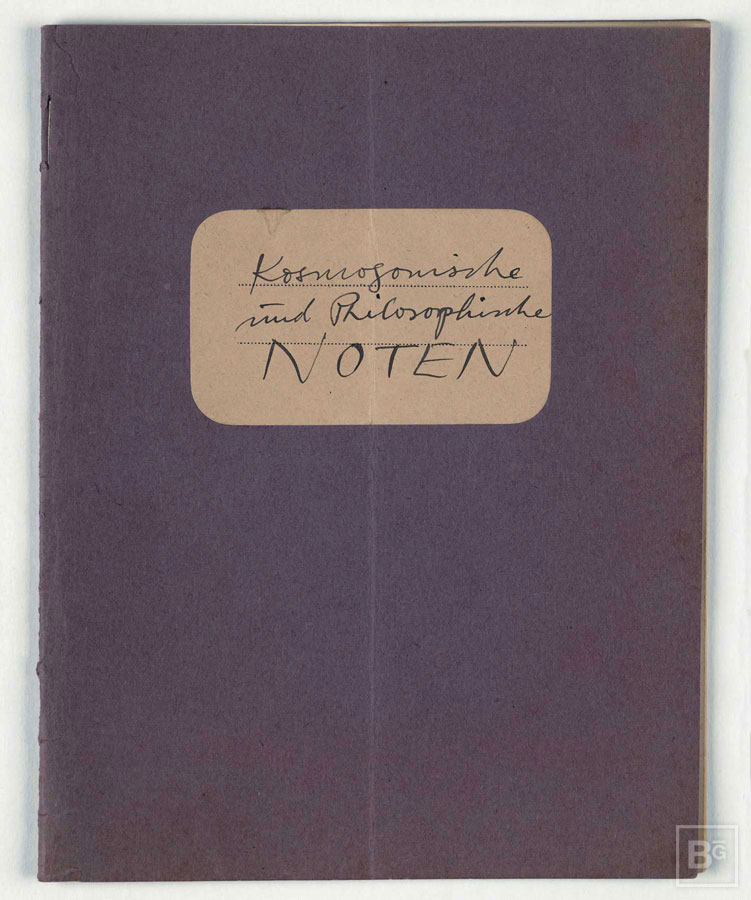 Kosmogonische
und Philosophische
NOTEN
BG